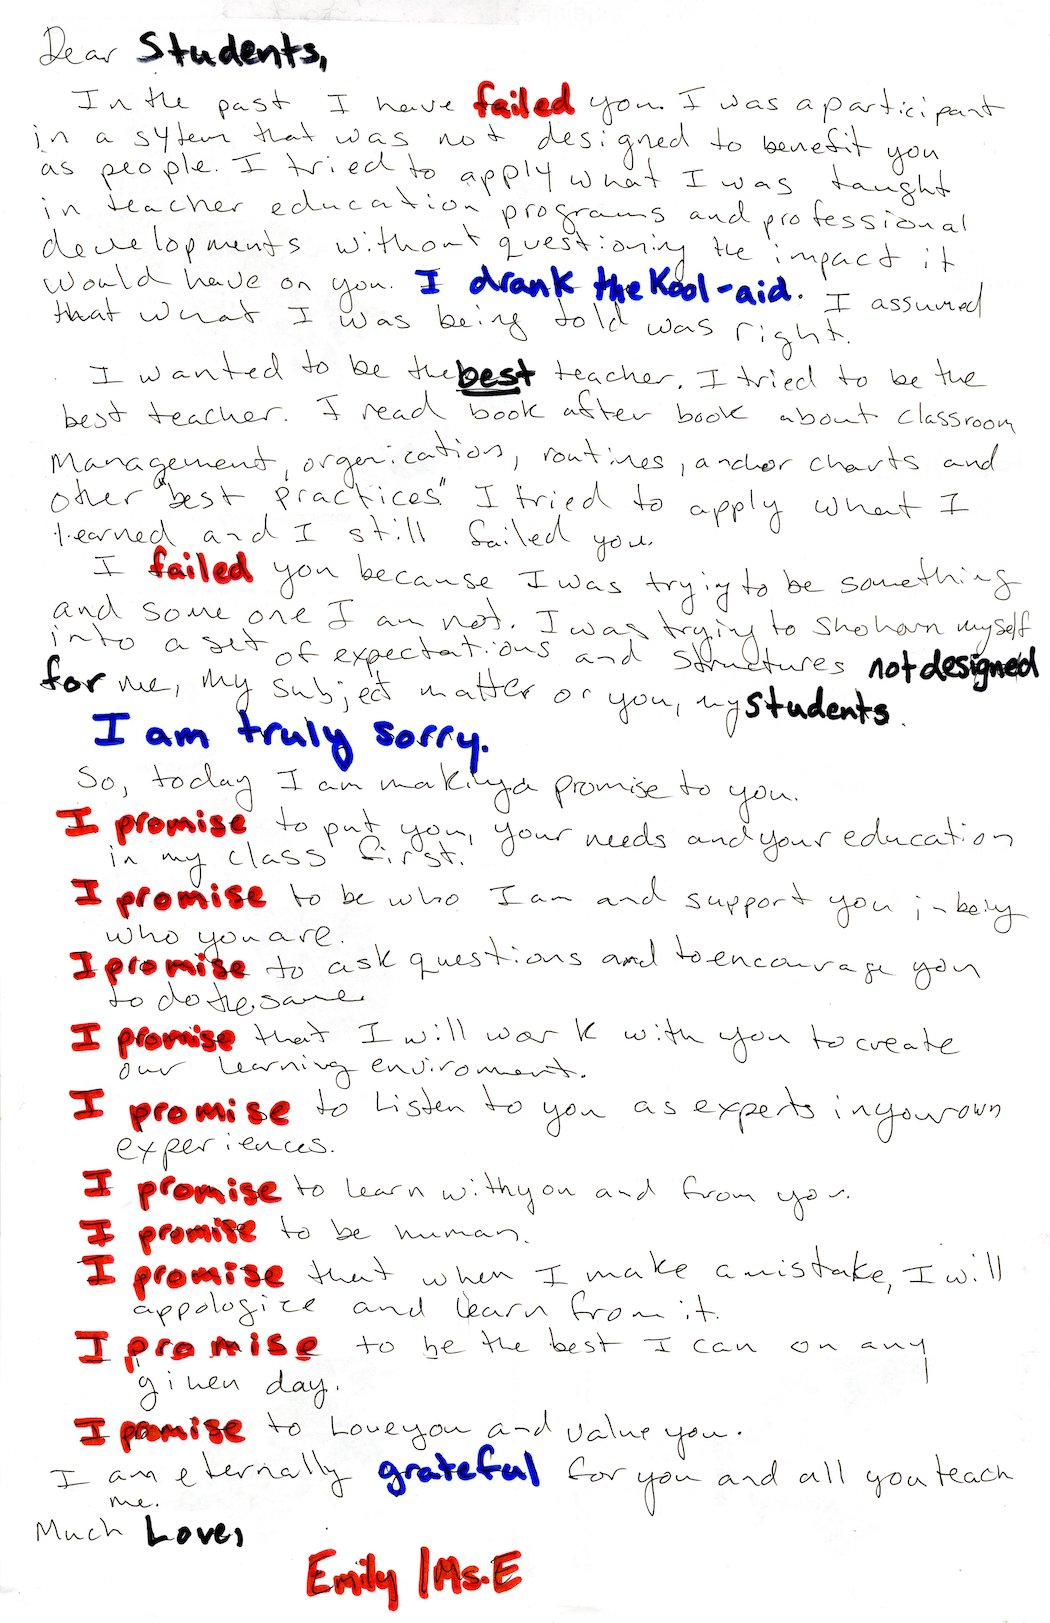 Dear Students,
In the past I have failed you. I was a participant
in a sytem that was not designed to benefit you
as people. I tried to apply what I was taught
in teacher education programs and professional
developments without questioning the impact it
would have on you. I drank the Kool-aid. I assumed
that what I was being told was right.
I wanted to be the best teacher. I tried to be the
best teacher. I read book after book about classroom
management, organization, routines, anchor charts and
other "best practices" I tried to apply what I
learned and I still failed you.
I failed you because I was tryig to be something
and some one I am not. I was trying to shohorn myself
into a set of expectations and structures not designed
for me, my subject matter or you, my students.
I am truly sorry.
So, today I am making a promise to you.
I promise to put you, your needs and your education
in my class first.
I promise to be who I am and support you in being
who you are.
I promise to ask questions and to encourage you
to do the same
I promise that I will work with you to create
our learning enviroment.
I promise to listen to you as experts in your own
experiences.
I promise to learn with you and from you.
I promise to be human.
I promise that when I make a mistake, I will
appologize and learn from it.
I promise to be the best I can on any
given day.
I promise to love you and value you.
I am eternally grateful for you and all you teach
me.
Much Love,
Emily / Ms. E